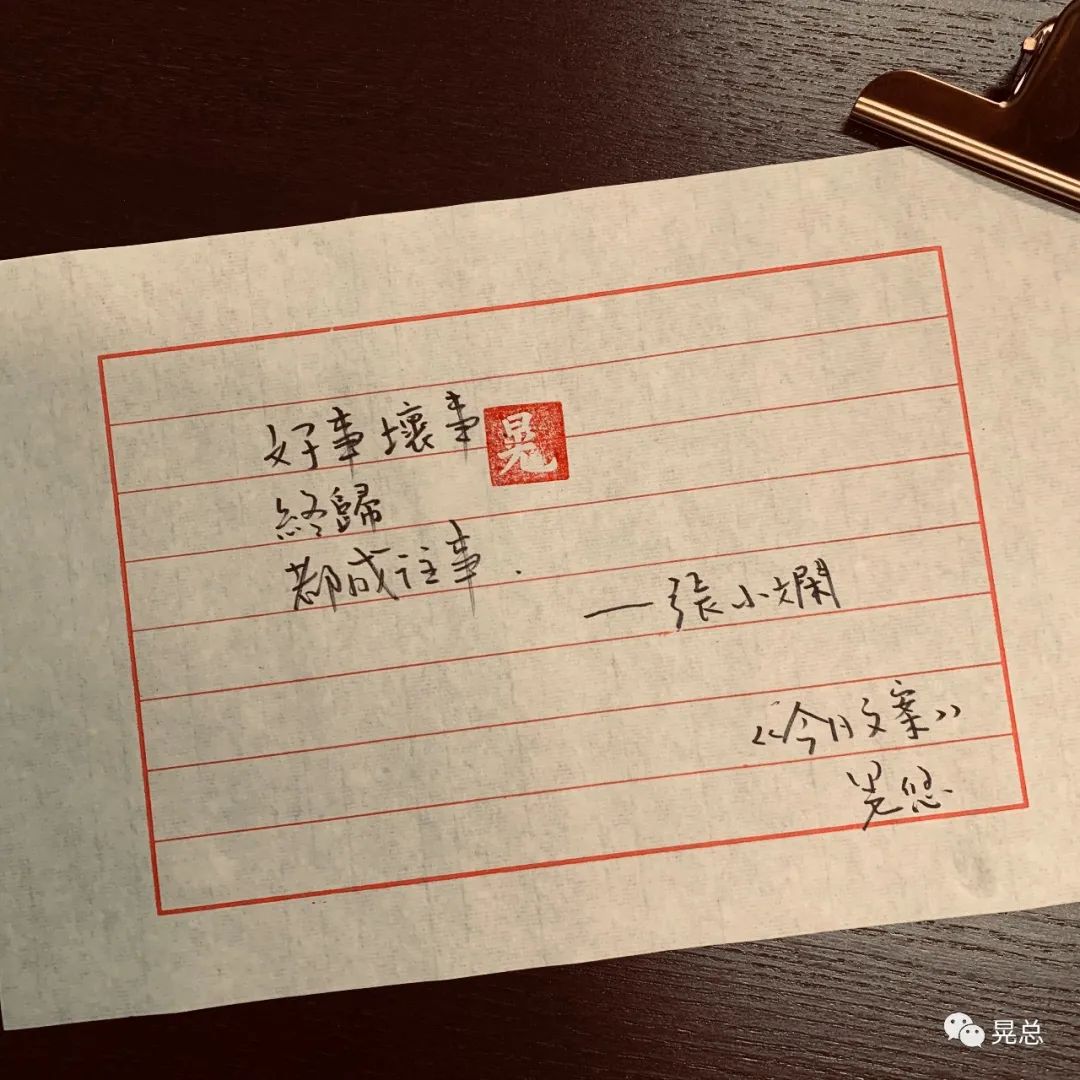 好事壞事
晃
終歸
都成往事.
—張小嫻
《今日文案》
晃悠
晃总